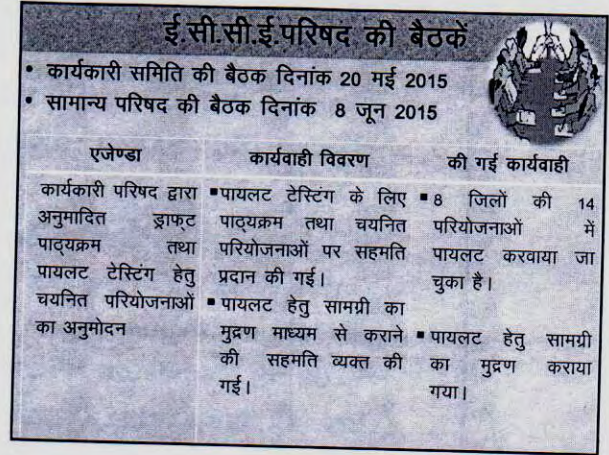 ई.सी.सी.ई.परिषद की बैठकें
• कार्यकारी समिति की बैठक दिनांक 20 मई 2015
• सामान्य परिषद की बैठक दिनांक 8 जून 2015
एजेण्डा
कार्यकारी परिषद द्वारा
अनुमादित ड्राफ्ट
पाठ्यक्रम तथा
पायलट टेस्टिंग हेतु
चयनित परियोजनाओं
का अनुमोदन
कार्यवाही विवरण
▪पायलट टेस्टिंग के लिए
पाठ्यक्रम तथा चयनित
परियोजनाओं पर सहमति
प्रदान की गई।
▪पायलट हेतु सामग्री का
मुद्रण माध्यम से कराने
की सहमति व्यक्त की
गई।
की गई कार्यवाही
▪8 जिलों की 14
परियोजनाओं में
पायलट करवाया जा
चुका है।
▪पायलट हेतु सामग्री
का मुद्रण कराया
गया।